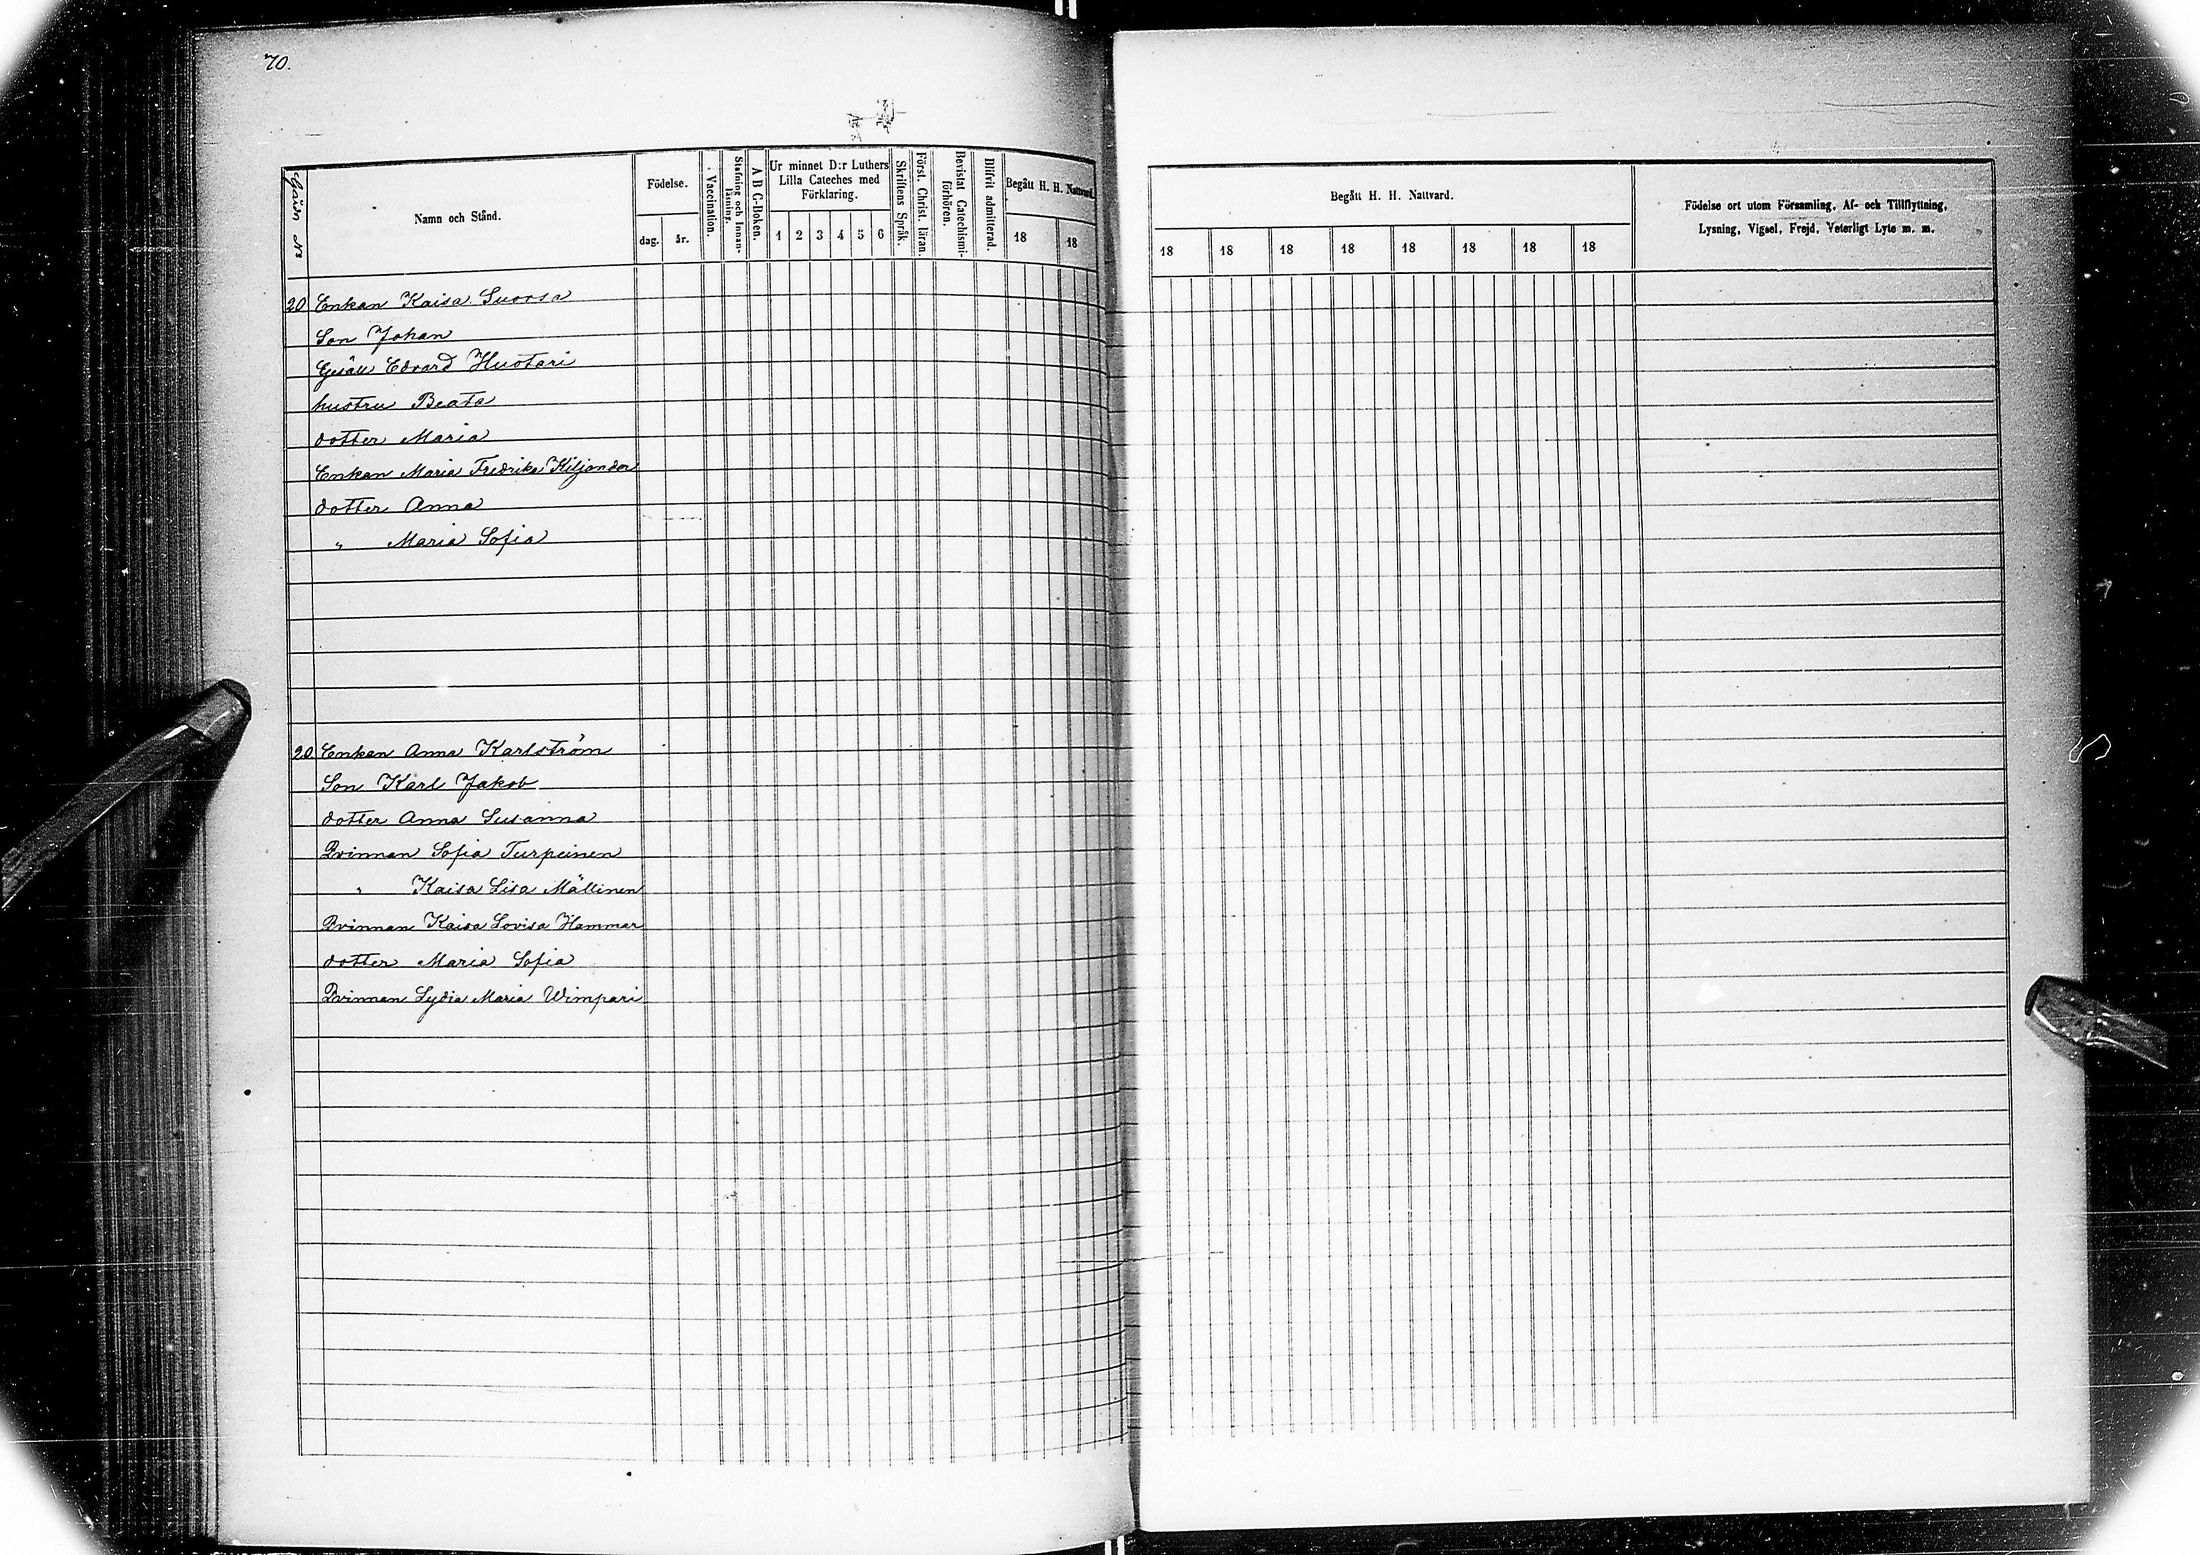 70.
Gård No
Namn och Stånd.
Födelse.
dag.
år.
Vaccination.
Stafning och innan-
läsning.
A B C-Boken.
Ur minnet D:r Luthers
Lilla Cateches med
Förklaring.
1 2 3 4 5 6
Skriftens Språk.
Först. Christ. läran.
Bevistat Catechismi-
förhören.
Blifvit admitterad.
Begått H. H. Nattvard.
18 18
20 Enkan Kaisa Suorsa
Son Johan
Gesäll Edvard Huotari
hustru Beata
dotter Maria
Enkan Maria Fredrika Kiljander
dotter Anna
" Maria Sofia
20 Enkan Anna Karlström
Son Karl Jakob
dotter Anna Susanna
Qvinnan Sofia Turpeinen
" Kaisa Lisa Mällinen
Qvinnan Kaisa Lovisa Hammar
dotter Maria Sofia
Qvinnan Lydia Maria Wimpari
Begått H. H. Nattvard.
18 18 18 18 18 18 18 18
Födelse ort utom Församling, Af- och Tillflyttning,
Lysning, Vigsel, Frejd, Veterligt Lyte m. m.